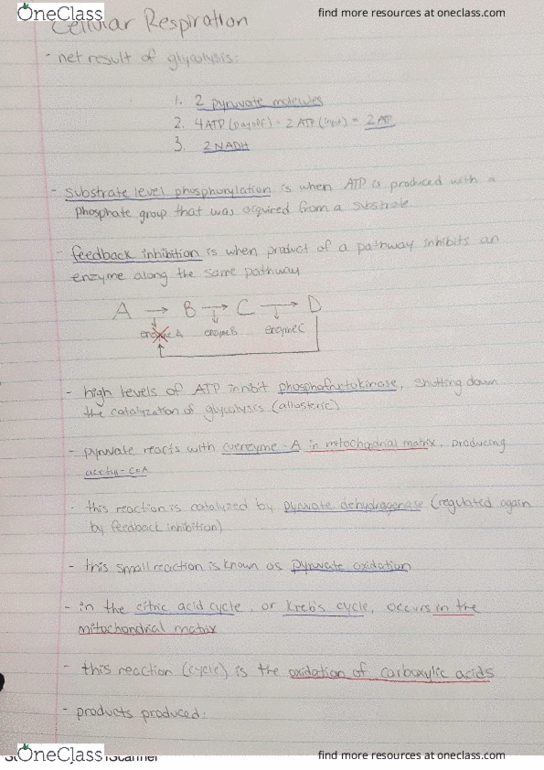 OneClass
find more resources at oneclass.com
Cellular Respiration
- net result of glycolysis:
1. 2 pyruvate molecules
2. 4 ATP (payoff) - 2 ATP (input) = 2 ATP
3. 2 NADH
- substrate level phosphorylation is when ATP is produced with a
phosphate group that was acquired from a substrate
- feedback inhibition is when product of a pathway inhibits an
enzyme along the same pathway
A → B → C → D
enzyme A enzyme B enzyme C
- high levels of ATP inhibit phosphofructokinase, shutting down
the catalyzation of glycolysis (allosteric)
- pyruvate reacts with coenzyme-A in mitochondrial matrix, producing
acetyl-CoA
- this reaction is catalyzed by pyruvate dehydrogenase (regulated again
by feedback inhibition)
- this small reaction is known as pyruvate oxidation
- in the citric acid cycle, or Kreb's cycle, occurs in the
mitochondrial matrix
- this reaction (cycle) is the oxidation of carboxylic acids
- products produced:
OneClass
find more resources at oneclass.com